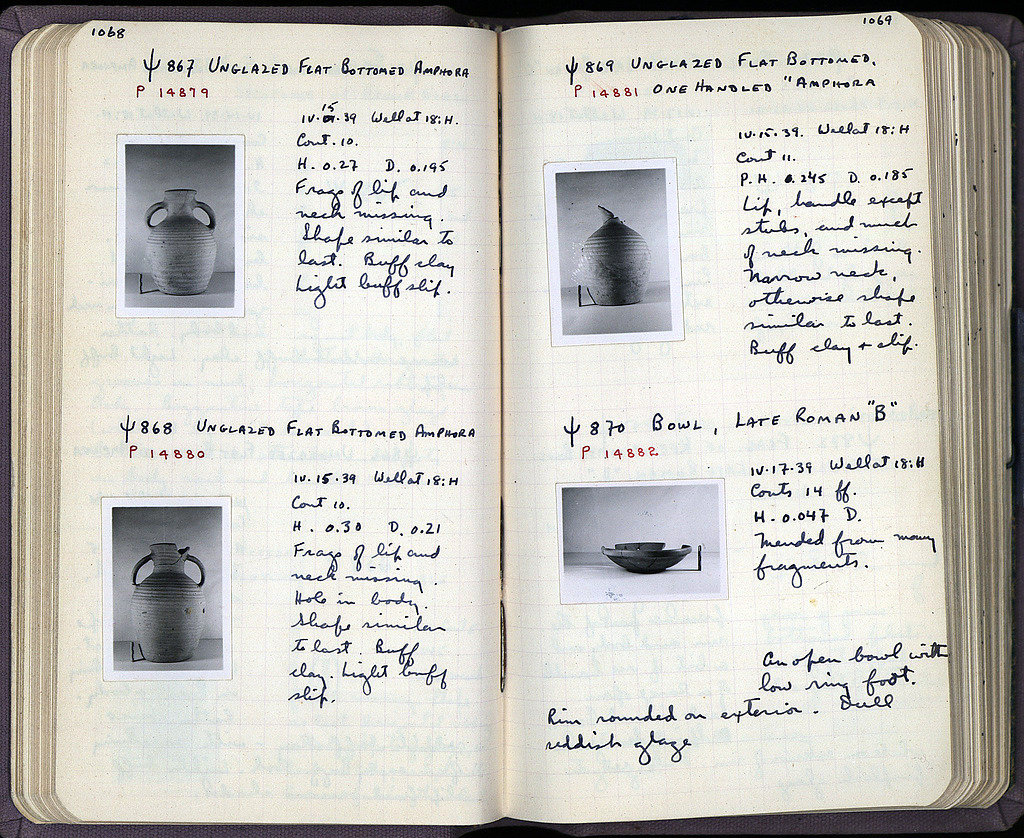 1068
Ψ 867 UNGLAZED FLAT BOTTOMED AMPHORA
P 14879
IV. 15 .39 Well at 18:H.
Cont. 10.
H. 0.27 D. 0.195
Frags of lip and
neck missing.
Shape similar to
last. Buff clay
Light buff slip.
Ψ 868 UNGLAZED FLAT BOTTOMED AMPHORA
P 14880
IV.15.39 Well at 18:H
Cont 10.
H. 0.30 D. 0.21
Frags of lip and
neck missing.
Hole in body.
Shape similar
to last. Buff
clay. Light buff
slip.
1069
Ψ 869 UNGLAZED FLAT BOTTOMED,
P 14881 ONE HANDLED "AMPHORA
IV.15.39. Well at 18:H
Cont 11.
P.H. 0.245 D. 0.185
Lip, handle except
stubs, and much
of neck missing.
Narrow neck,
otherwise shape
similar to last.
Buff clay + slip.
Ψ 870 BOWL, LATE ROMAN "B"
P 14882
IV.17.39 Well at 18:H
Conts 14 ff.
H. 0.047 D.
Mended from many
fragments.
An open bowl with
low ring foot.
Rim rounded on exterior. Dull
reddish glaze